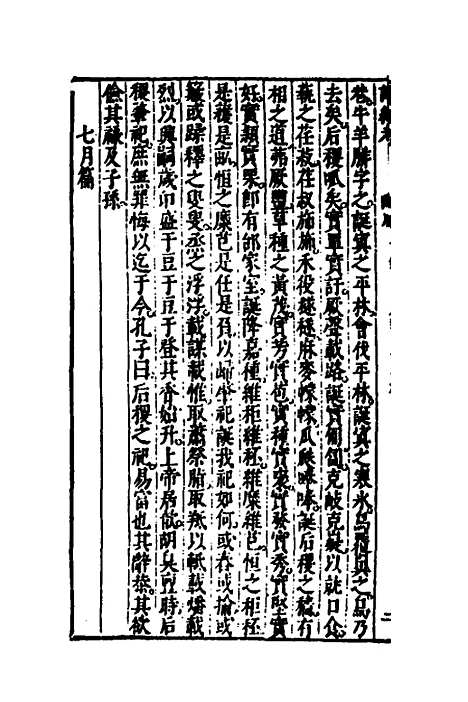 巷牛羊腓字之誕寘之平林會伐平林誕寘之寒冰鳥覆翼之鳥乃
去矣后稷呱矣實覃實訏厥聲載路誕實匍匐克岐克嶷以就口食
蓺之荏菽荏菽旆旆禾役穟穟麻麥幪幪瓜瓞唪唪誕后稷之穡有
相之道茀厥豐草種之黃茂實方實苞實種實褎實發實秀實堅實
好實穎實栗即有邰家室誕降嘉種維秬維秠維穈維芑恒之秬秠
是穫是畝恒之穈芑是任是負以歸肇祀誕我祀如何或舂或揄或
簸或蹂釋之叟叟烝之浮浮載謀載惟取蕭祭脂取羝以軷載燔載
烈以興嗣歲卬盛于豆于豆于登其香始升上帝居歆胡臭亶時后
稷肇祀庶無罪悔以迄于今孔子曰后稷之祀易富也其辭恭其欲
儉其祿及子孫
七月篇